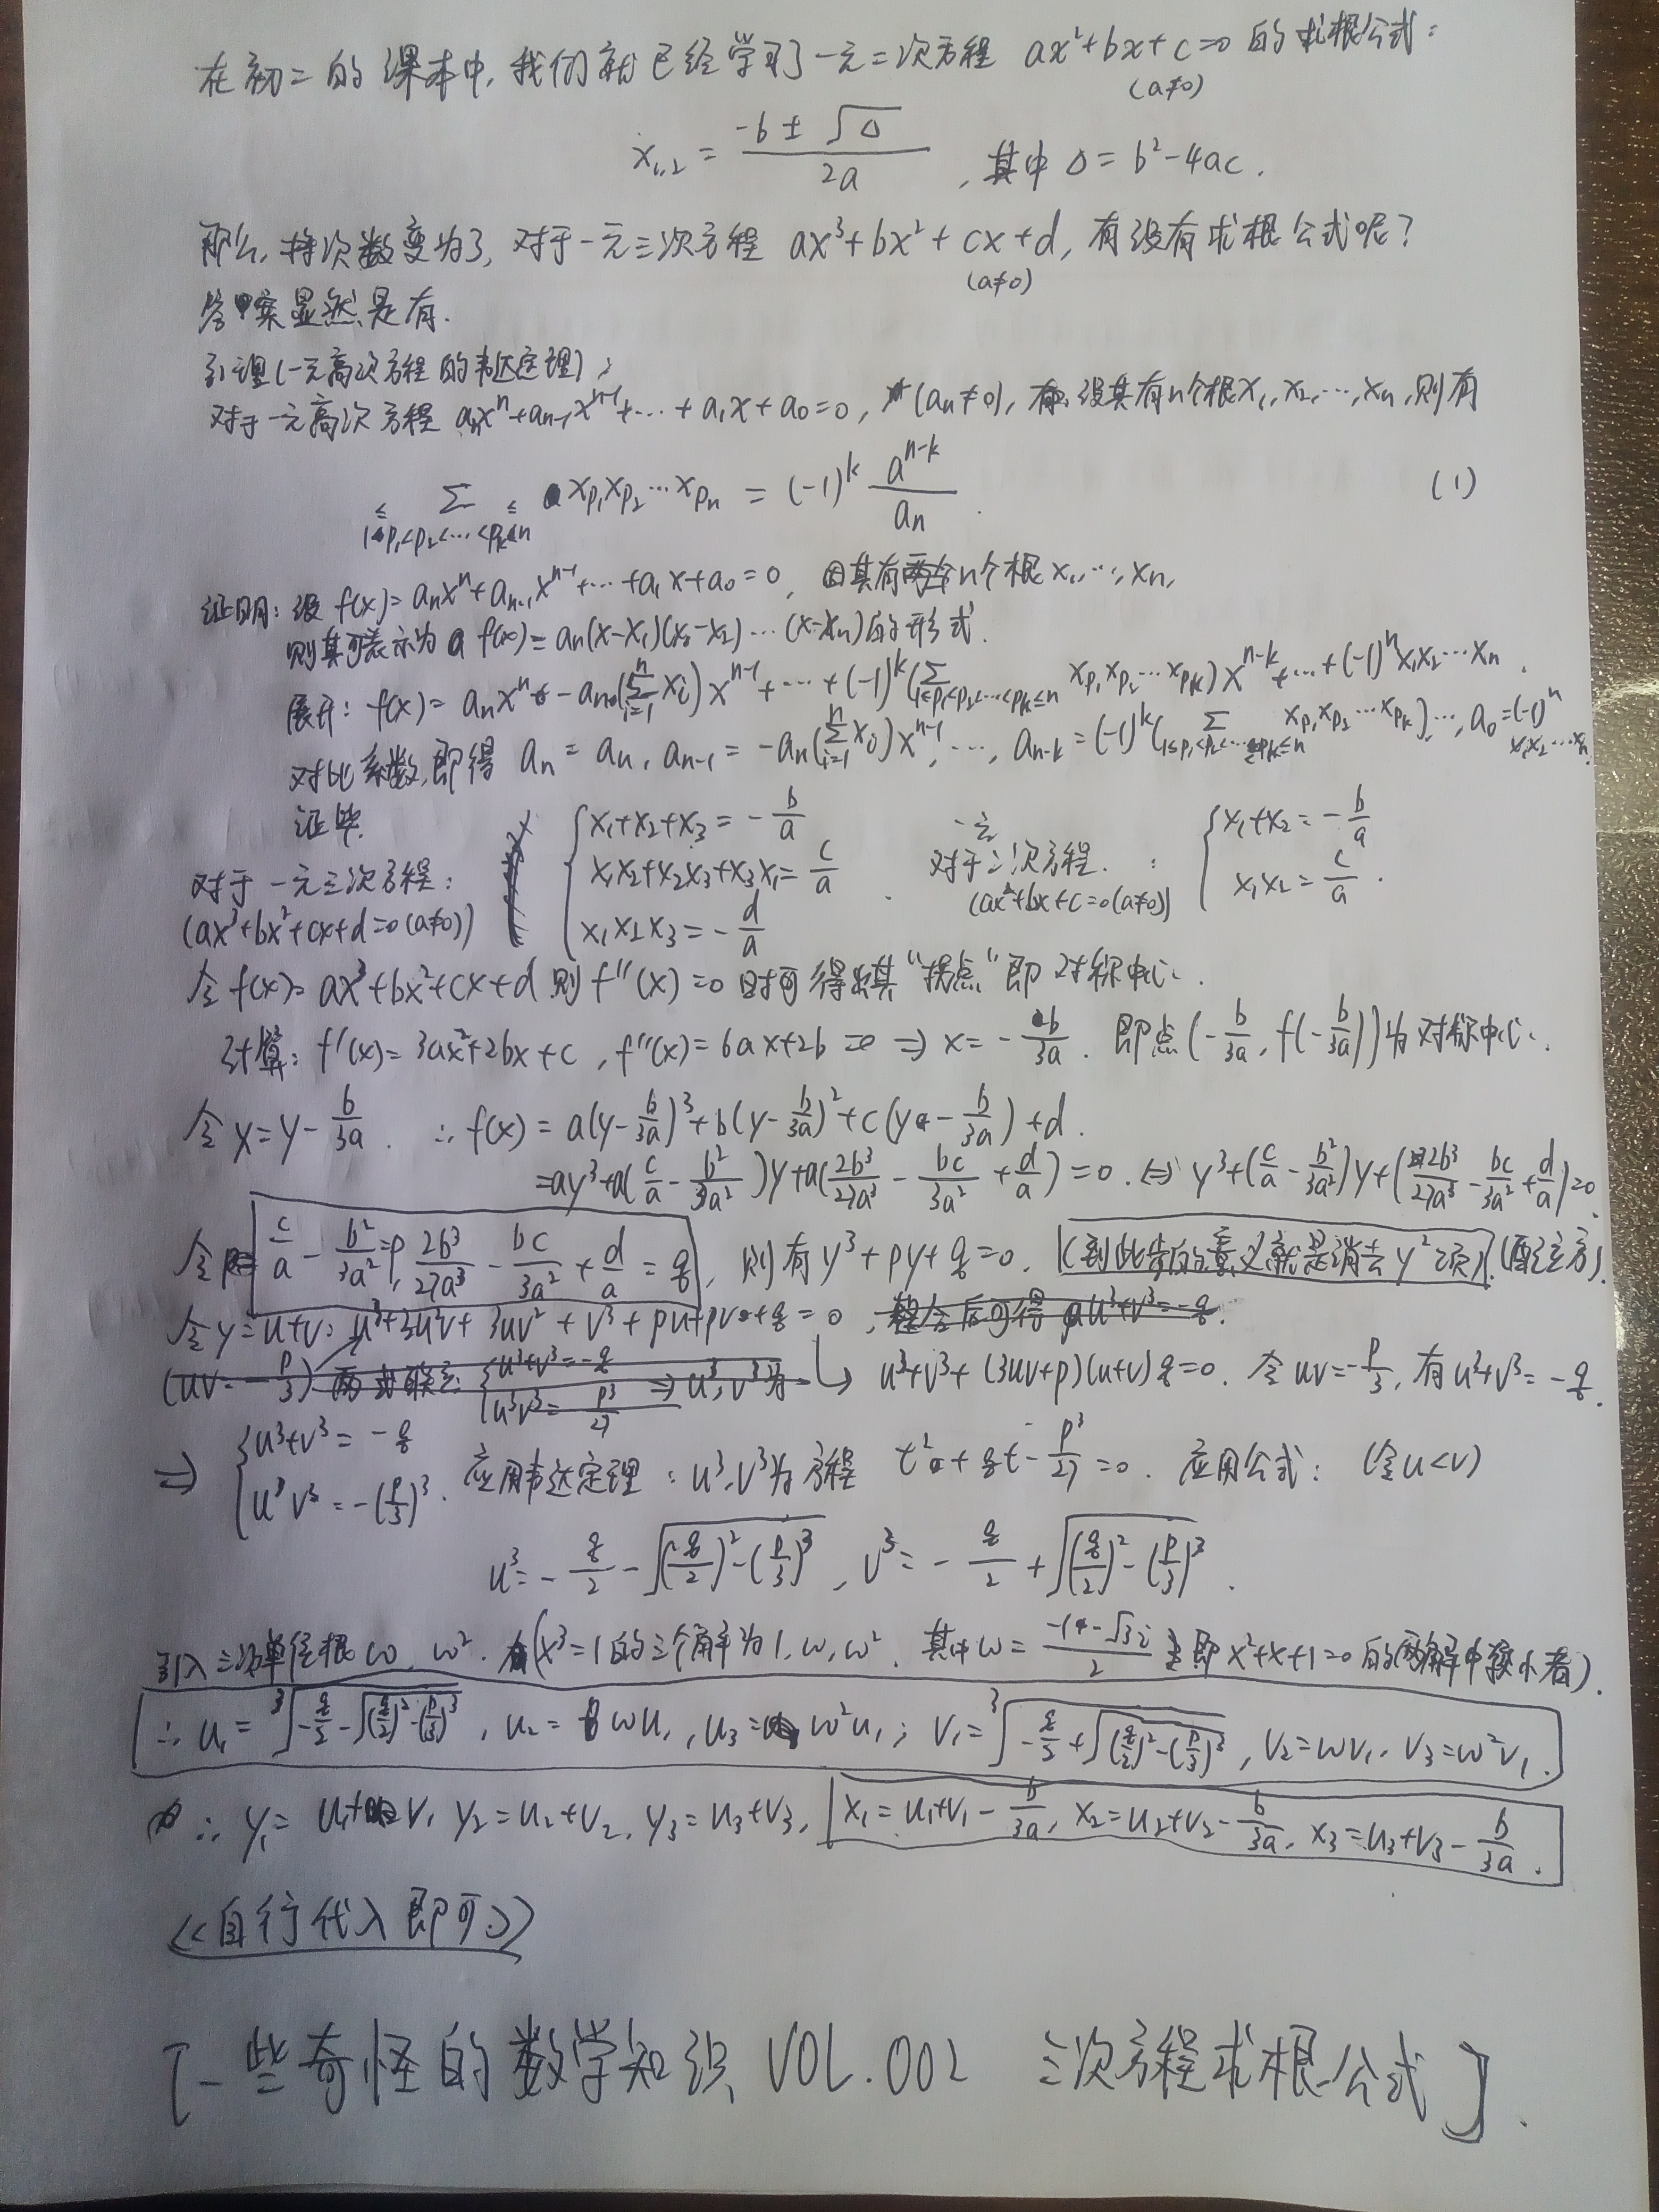 在初二的课本中,我们就已经学习了一元二次方程 ax²+bx+c=0 的求根公式:
(a≠0)
x₁,₂ = (-b ± √Δ)/(2a) ,其中 Δ = b²-4ac.
那么,将次数变为3,对于一元三次方程 ax³+bx²+cx+d,有没有求根公式呢?
(a≠0)
答案显然是有.
引理(一元高次方程的韦达定理):
对于一元高次方程 aₙxⁿ+aₙ₋₁xⁿ⁻¹+⋯+a₁x+a₀=0, (aₙ≠0), 设其有n个根x₁,x₂,⋯,xₙ,则有
∑_{1≤p₁<p₂<⋯<pₖ≤n} x_{p₁}x_{p₂}⋯x_{pₙ} = (-1)^k a^{n-k}/aₙ. (1)
证明:设 f(x)=aₙxⁿ+aₙ₋₁xⁿ⁻¹+⋯+a₁x+a₀=0, 因其有n个根x₁,⋯,xₙ,
则其可表示为 f(x)=aₙ(x-x₁)(x-x₂)⋯(x-xₙ)的形式.
展开: f(x)=aₙxⁿ-aₙ(∑_{i=1}^{n}xᵢ)xⁿ⁻¹+⋯+(-1)^k(∑_{1≤p₁<p₂<⋯<pₖ≤n} x_{p₁}x_{p₂}⋯x_{pₖ})x^{n-k}+⋯+(-1)ⁿx₁x₂⋯xₙ.
对比系数,即得 aₙ=aₙ, aₙ₋₁=-aₙ(∑_{i=1}^{n}xᵢ)xⁿ⁻¹,⋯, aₙ₋ₖ=(-1)^k(∑_{1≤p₁<p₂<⋯<pₖ≤n} x_{p₁}x_{p₂}⋯x_{pₖ}),⋯,a₀=(-1)ⁿx₁x₂⋯xₙ.
证毕.
对于一元三次方程: { x₁+x₂+x₃=-b/a
(ax³+bx²+cx+d=0(a≠0)) x₁x₂+x₂x₃+x₃x₁=c/a
x₁x₂x₃=-d/a .
对于一元二次方程: { x₁+x₂=-b/a
(ax²+bx+c=0(a≠0)) x₁x₂=c/a .
令 f(x)=ax³+bx²+cx+d 则 f''(x)=0 时可得出其“拐点”即对称中心.
计算: f'(x)=3ax²+2bx+c, f''(x)=6ax+2b=0 ⇒ x=-b/3a. 即点(-b/3a, f(-b/3a))为对称中心.
令 x=y-b/3a. ∴ f(x)=a(y-b/3a)³+b(y-b/3a)²+c(y-b/3a)+d.
=ay³+a(c/a-b²/3a²)y+a(2b³/27a³-bc/3a²+d/a)=0. ⇔ y³+(c/a-b²/3a²)y+(2b³/27a³-bc/3a²+d/a)=0.
令 c/a-b²/3a²=p, 2b³/27a³-bc/3a²+d/a=q, 则有 y³+py+q=0. (到此步的意义就是消去y²项).(配立方).
令 y=u+v: u³+3u²v+3uv²+v³+pu+pv+q=0, 整合后可得 u³+v³=-q.
(uv=-p/3) 两式联立: {u³+v³=-q u³v³=-p³/27 ⇒ u³,v³为 → u³+v³+(3uv+p)(u+v)q=0. 令 uv=-p/3, 有 u³+v³=-q.
⇒ { u³+v³=-q u³v³=-(p/3)³. 应用韦达定理: u³,v³为方程 t²+qt-p³/27=0. 应用公式: (令u<v)
u³=-q/2-√((q/2)²-(p/3)³), v³=-q/2+√((q/2)²-(p/3)³).
引入三次单位根 ω, ω². (x³=1的三个解为1,ω,ω². 其中ω=(-1-√3i)/2 即x²+x+1=0的两解中较小者).
∴ u₁=∛(-q/2-√((q/2)²-(p/3)³)), u₂=ωu₁, u₃=ω²u₁; v₁=∛(-q/2+√((q/2)²-(p/3)³)), v₂=ωv₁, v₃=ω²v₁.
∴ y₁=u₁+v₁ y₂=u₂+v₂, y₃=u₃+v₃, x₁=u₁+v₁-b/3a, x₂=u₂+v₂-b/3a, x₃=u₃+v₃-b/3a.
<<自行代入即可>>
[一些奇怪的数学知识 VOL.002 三次方程求根公式].